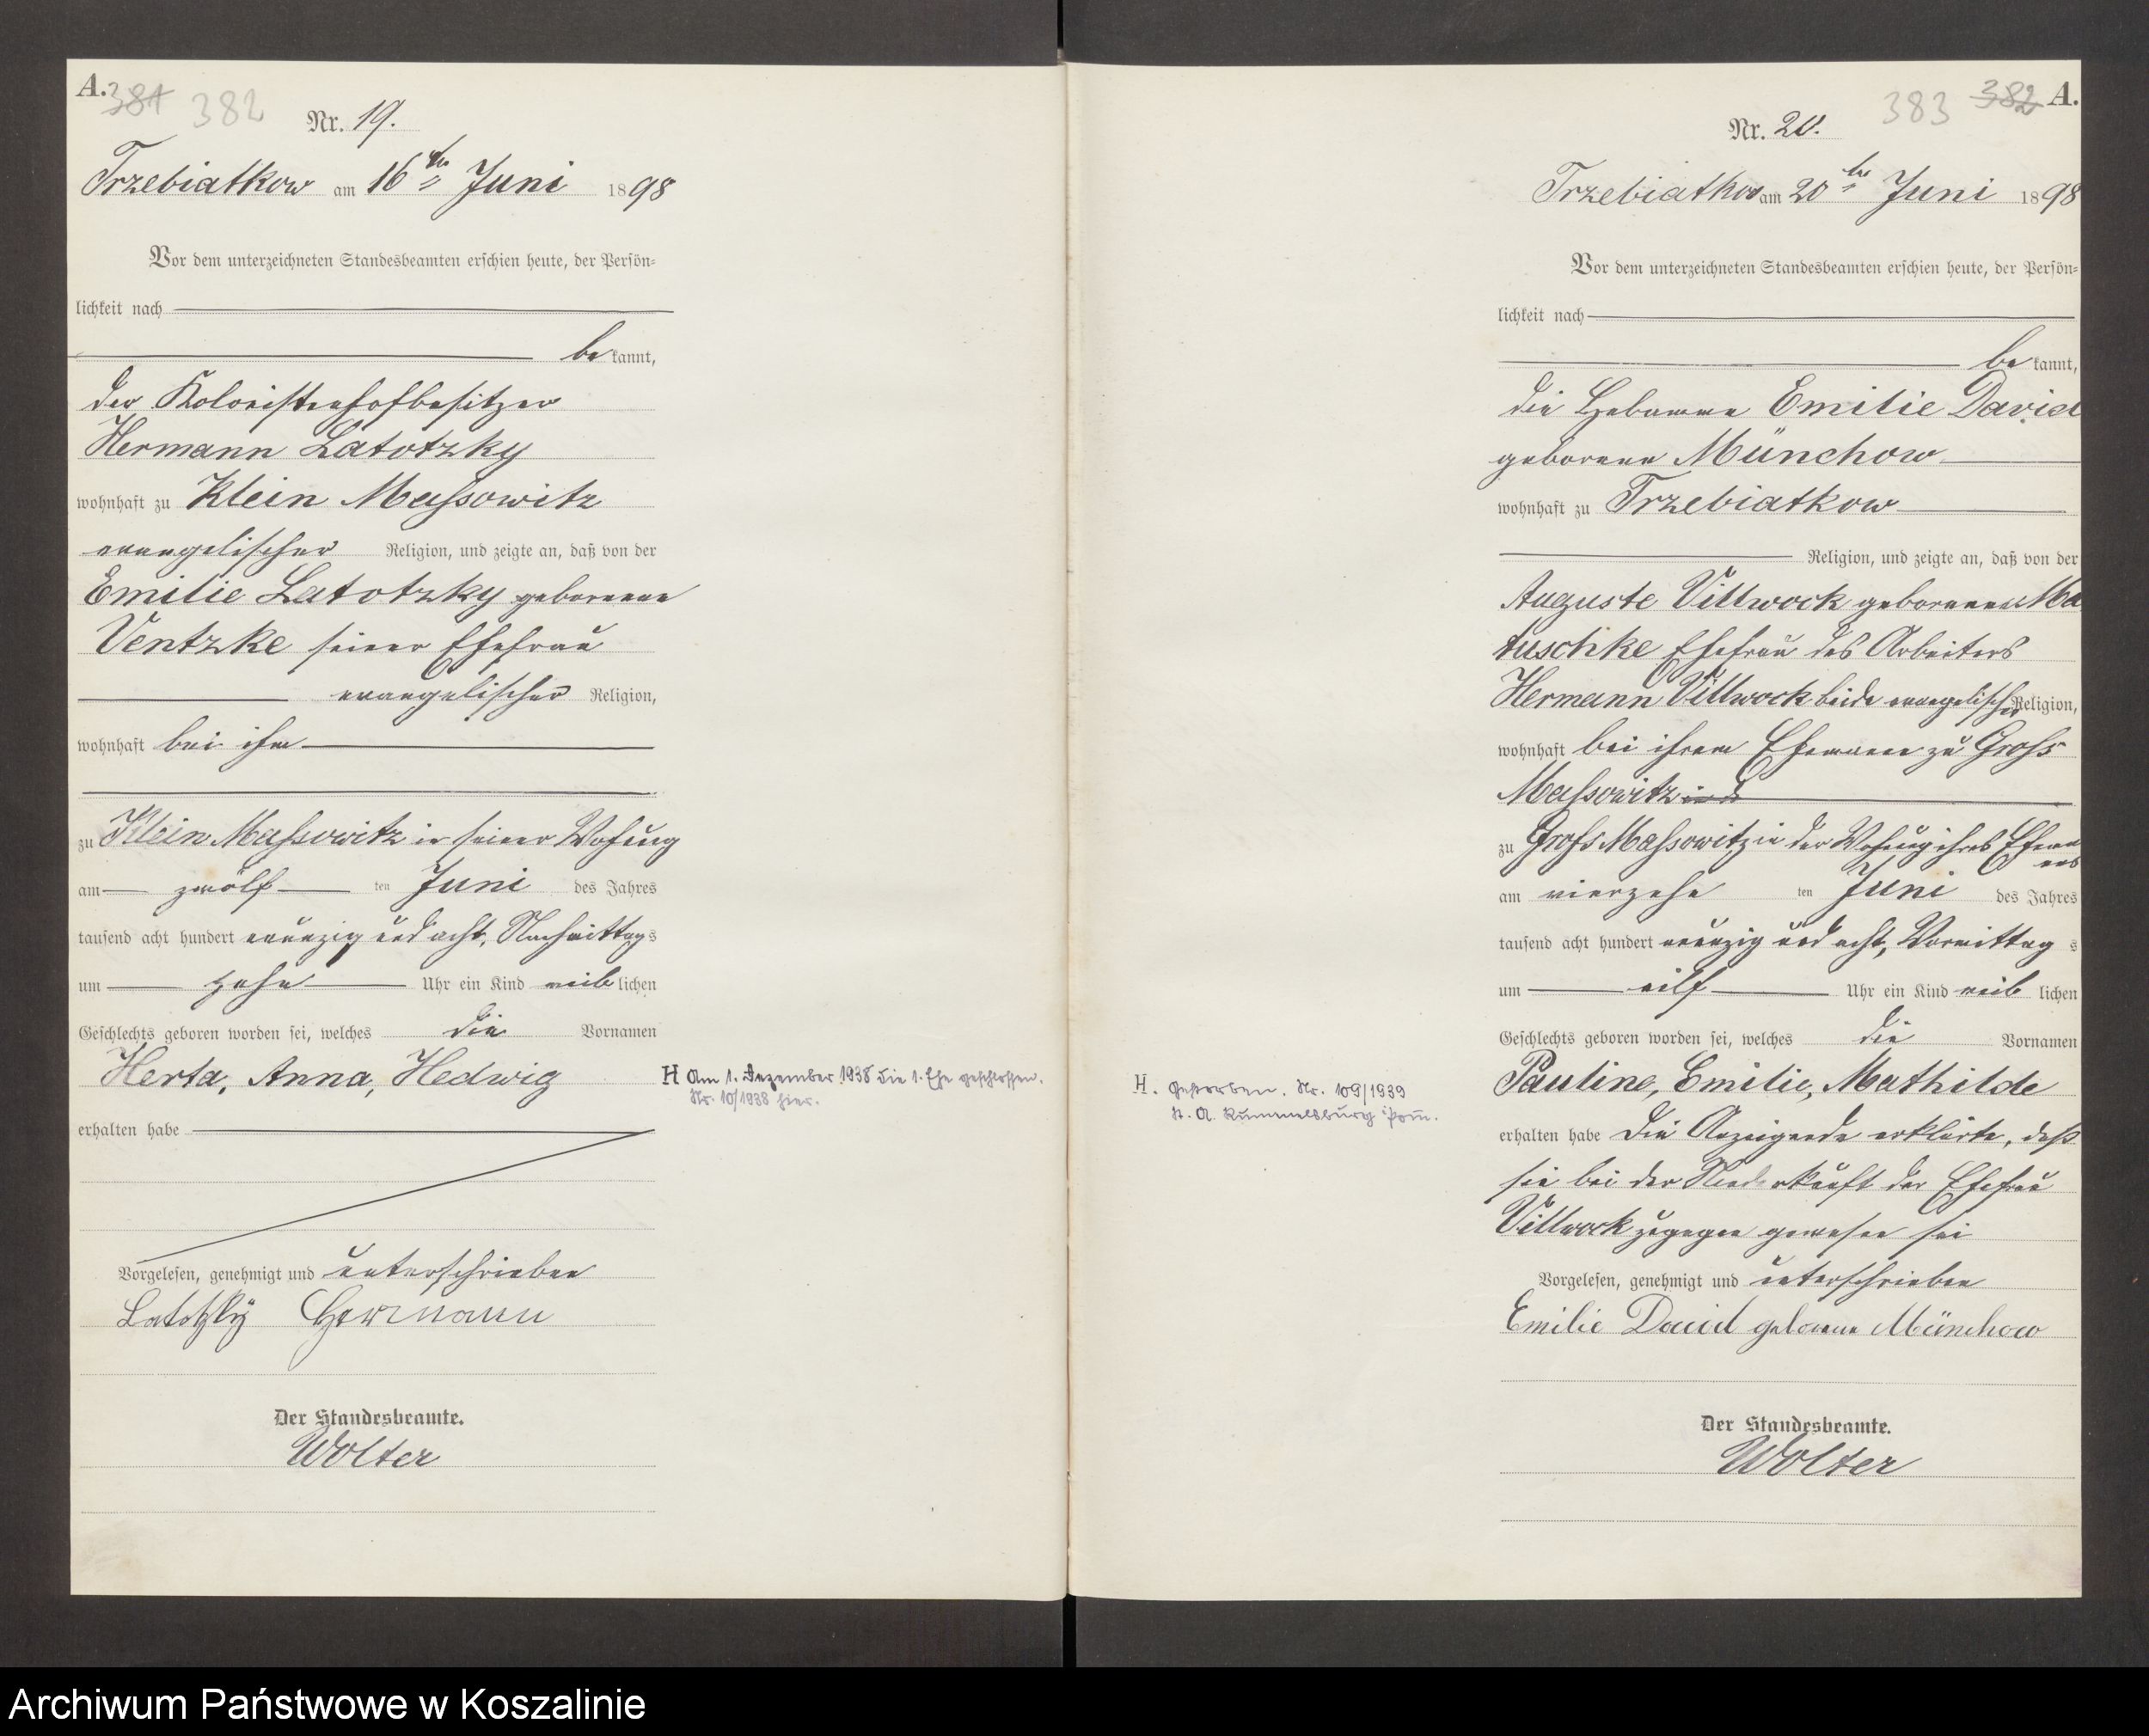 A.
381 382
Nr. 19.
Trzebiatkow am 16ten Juni 1898
Vor dem unterzeichneten Standesbeamten erschien heute, der Persön-
lichkeit nach
bekannt,
der Kolonistenhofbesitzer
Hermann Latotzky
wohnhaft zu Klein Massowitz
evangelischer Religion, und zeigte an, daß von der
Emilie Latotzky geborenen
Ventzke seiner Ehefrau
evangelischer Religion,
wohnhaft bei ihm
zu Klein Massowitz in seiner Wohung
am zwölf ten Juni des Jahres
tausend acht hundert neunzig und acht, Nachmittags
um zehn Uhr ein Kind weiblichen
Geschlechts geboren worden sei, welches die Vornamen
Herta, Anna, Hedwig
erhalten habe
Vorgelesen, genehmigt und unterschrieben
Latotzky Hermann
Der Standesbeamte.
Wolter
H Am 1. Dezember 1938 die 1. Ehe geschlossen.
Nr. 10/1938 hier.
383 382 A.
Nr. 20.
Trzebiatkow am 20ten Juni 1898
Vor dem unterzeichneten Standesbeamten erschien heute, der Persön-
lichkeit nach
bekannt,
die Hebamme Emilie David
geborene Münchow
wohnhaft zu Trzebiatkow
Religion, und zeigte an, daß von der
Auguste Villwock geborenen Ma
tuschke Ehefrau des Arbeiters
Hermann Villwock beide evangelischer Religion,
wohnhaft bei ihrem Ehemann zu Gross
Massowitz
zu Gross Massowitz in der Wohnug ihres Ehema
nns
am vierzehn ten Juni des Jahres
tausend acht hundert neunzig und acht, Vormittag s
um eilf Uhr ein Kind weib lichen
Geschlechts geboren worden sei, welches die Vornamen
Pauline, Emilie, Mathilde
erhalten habe Die Anzeigende erklärte, daß
sie bei der Niederkunft der Ehefrau
Villwock zugegen gewesen sei
Vorgelesen, genehmigt und unterschrieben
Emilie David geborene Münchow
Der Standesbeamte.
Wolter
H. Gestorben. Nr. 109/1939
St. A. Rummelsburg i Pom.
Archiwum Państwowe w Koszalinie